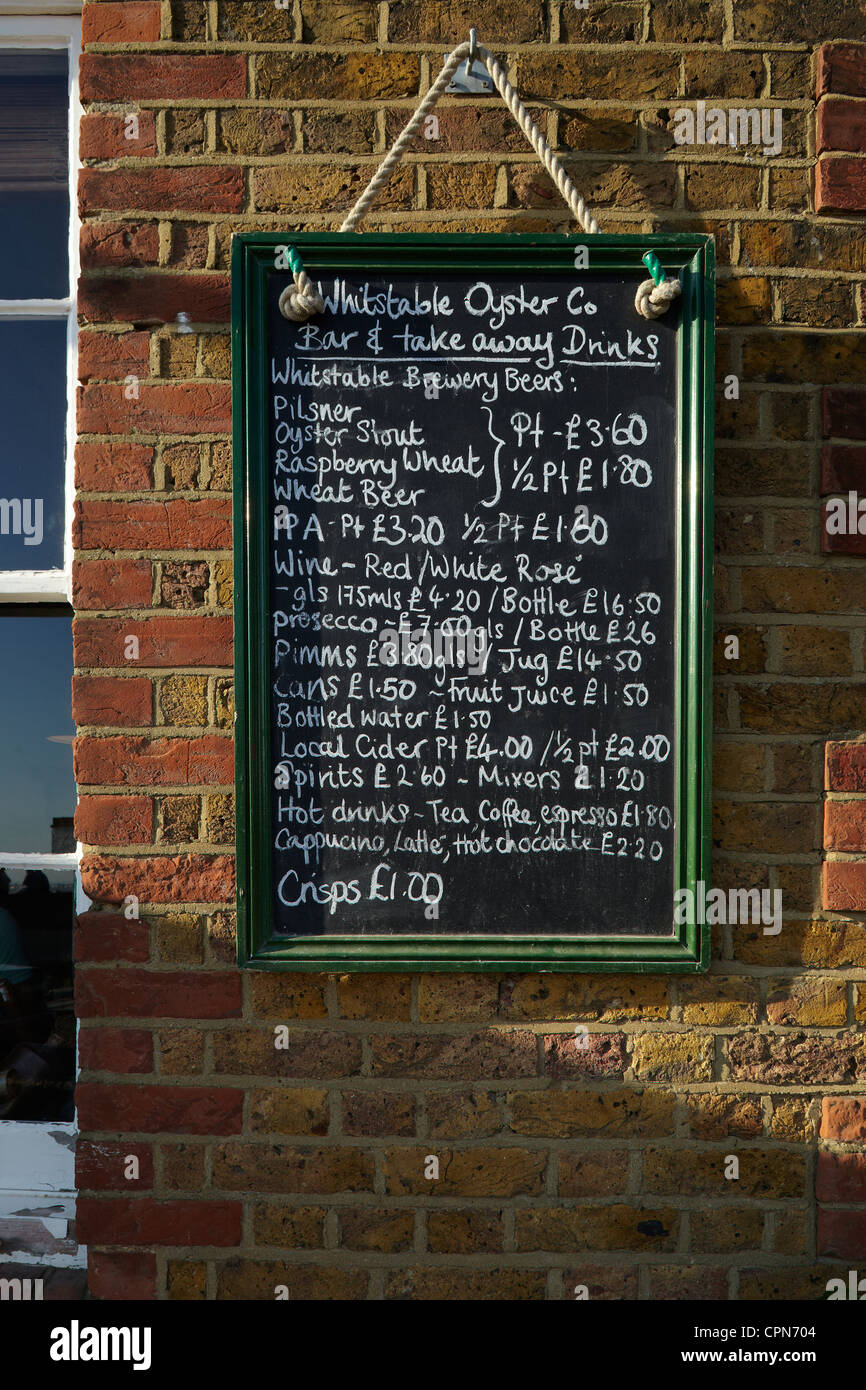 Whitstable Oyster Co
Bar & take away Drinks
Whitstable Brewery Beers:
Pilsner
Oyster Stout
Raspberry Wheat
Wheat Beer
Pt - £3.60
1/2 Pt £1.80
IPA - Pt £3.20 1/2 Pt £1.60
Wine - Red/White Rosé
- gls 175mls £4.20 / Bottle £16.50
prosecco - £7.50 gls / Bottle £26
Pimms £3.80 gls / Jug £14.50
Cans £1.50 ~ Fruit Juice £1.50
Bottled Water £1.50
Local Cider Pt £4.00 / 1/2 pt £2.00
Spirits £2.60 ~ Mixers £1.20
Hot drinks - Tea, Coffee, espresso £1.80
Cappucino, Latte, Hot chocolate £2.20
Crisps £1.00
alamy
alamy
Image ID: CPN704
www.alamy.com